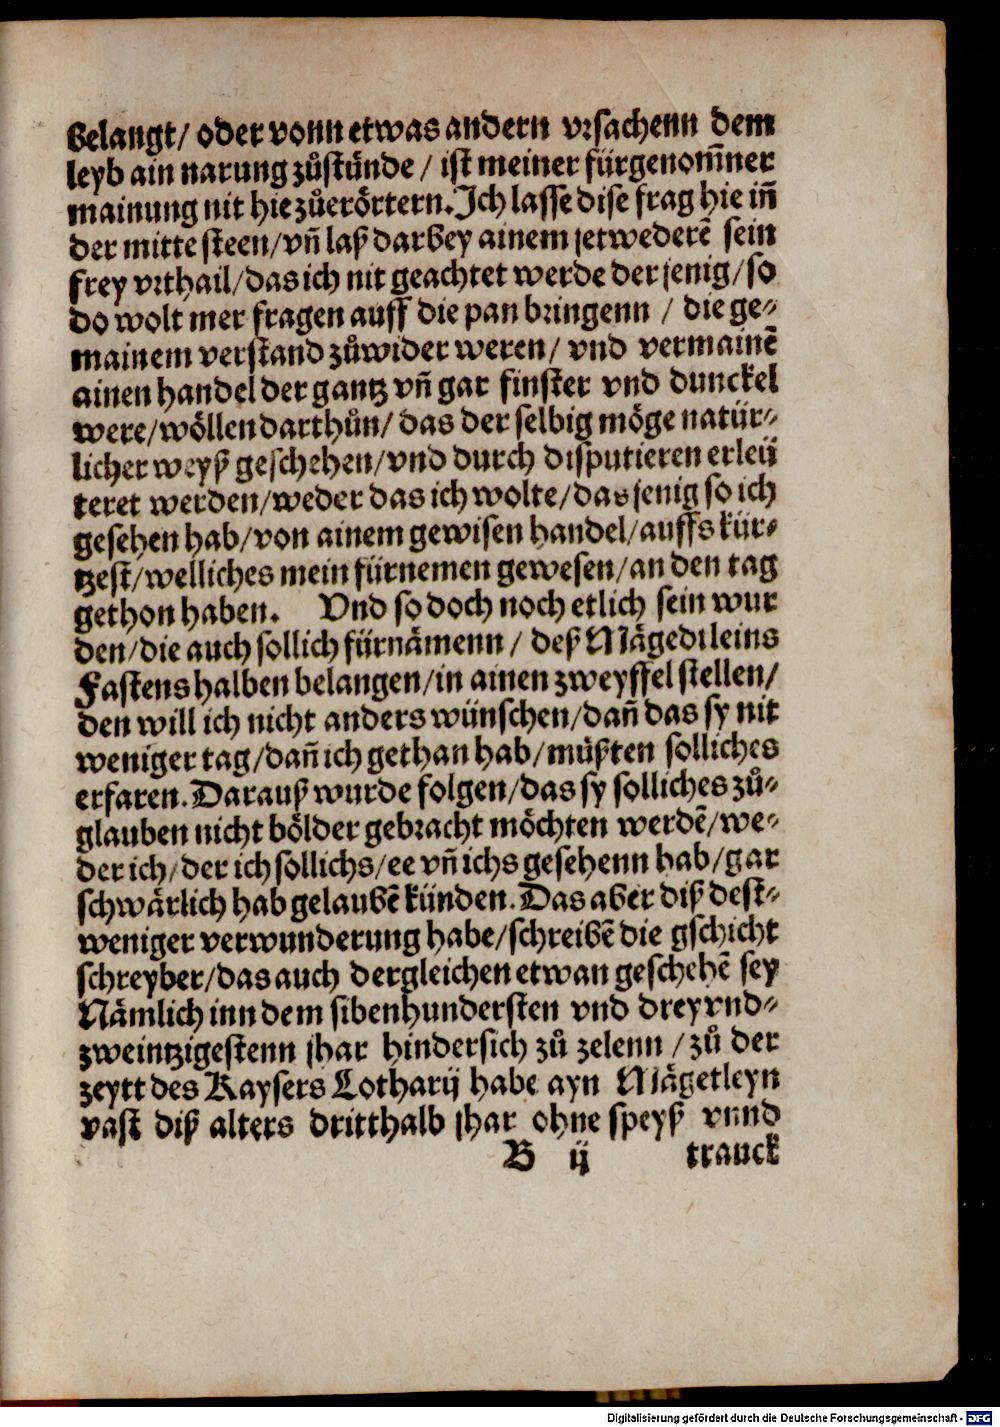 belangt/ oder vonn etwas andern vrsachenn dem
leyb ain narung zůstünde / ist meiner fürgenom̄ner
mainung nit hie zůerörtern. Jch lasse dise frag hie iñ
der mitte steen/ vñ laß darbey ainem jetwederẽ sein
frey vrthail/ das ich nit geachtet werde der jenig/ so
do wolt mer fragen auff die pan bringenn / die ge⸗
mainem verstand zůwider weren/ vnd vermainẽ
ainen handel der gantz vñ gar finster vnd dunckel
were/ wöllen darthůn/ das der selbig möge natür⸗
licher weyß geschehen/ vnd durch disputieren erleü
teret werden/ weder das ich wolte/ das jenig so ich
gesehen hab/ von ainem gewisen handel/ auffs kür⸗
tzest/ welliches mein fürnemen gewesen/ an den tag
gethon haben. Vnd so doch noch etlich sein wur
den/ die auch sollich fürnämenn / deß Mägedtleins
Fastens halben belangen/ in ainen zweyffel stellen/
den will ich nicht anders wünschen/ dañ das sy nit
weniger tag/ dañ ich gethan hab/ müßten solliches
erfaren. Darauß wurde folgen/ das sy solliches zů⸗
glauben nicht bölder gebracht möchten werdẽ/ we⸗
der ich/ der ich sollichs/ ee vñ ichs gesehenn hab/ gar
schwärlich hab gelaubẽ künden. Das aber diß dest⸗
weniger verwunderung habe/ schreibẽ die gschicht
schreyber/ das auch dergleichen etwan geschehẽ sey
Nämlich inn dem sibenhundersten vnd dreyvnd⸗
zweintzigestenn jhar hindersich zů zelenn / zů der
zeytt des Kaysers Lotharij habe ayn Mägetleyn
vast diß alters dritthalb jhar ohne speyß vnnd
B ij trauck
Digitalisierung gefördert durch die Deutsche Forschungsgemeinschaft - DFG